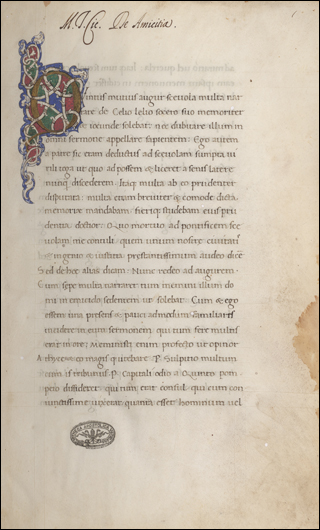 M. T. Cic. De Amicitia.
Quintus mutius augur sceuola multa nar
rare de Caio lelio socero suo memoriter
& iocunde solebat: nec dubitare illum in
omni sermone appellare sapientem: Ego autem
a patre sic eram deductus ad sceuolam sumpta ui
rili toga ut quo ad possem & liceret a senis latere
nunq̃ discederem. Itaq; multa ab eo prudenter
disputata: multa etiam breuiter & comode dicta
memorie mandabam: fieriq; studebam eius pru
dentia doctior. Quo mortuo ad pontificem sce
uolam me contuli: quem unum nostre ciuitatis
& ingenio & iustitia prestantissimum audeo dicere
Sed de hoc alias dicam: Nunc redeo ad augurem.
Cum sepe multa narraret tum memini illum do
mi in sedentem ut solebat: Cum & ego
essem una presens & pauci admodum familiares
incidere in eum sermonem qui tum fere multis
erat in ore: Meministi enim profecto ut opinor
eo magis utebare P. Sulpitio multum
cum is tribunus P. Capitali odio a Quinto pom
peio dissideret qui tum erat consul qui cum con
iunctissime uixerat quanta esset hominum uel